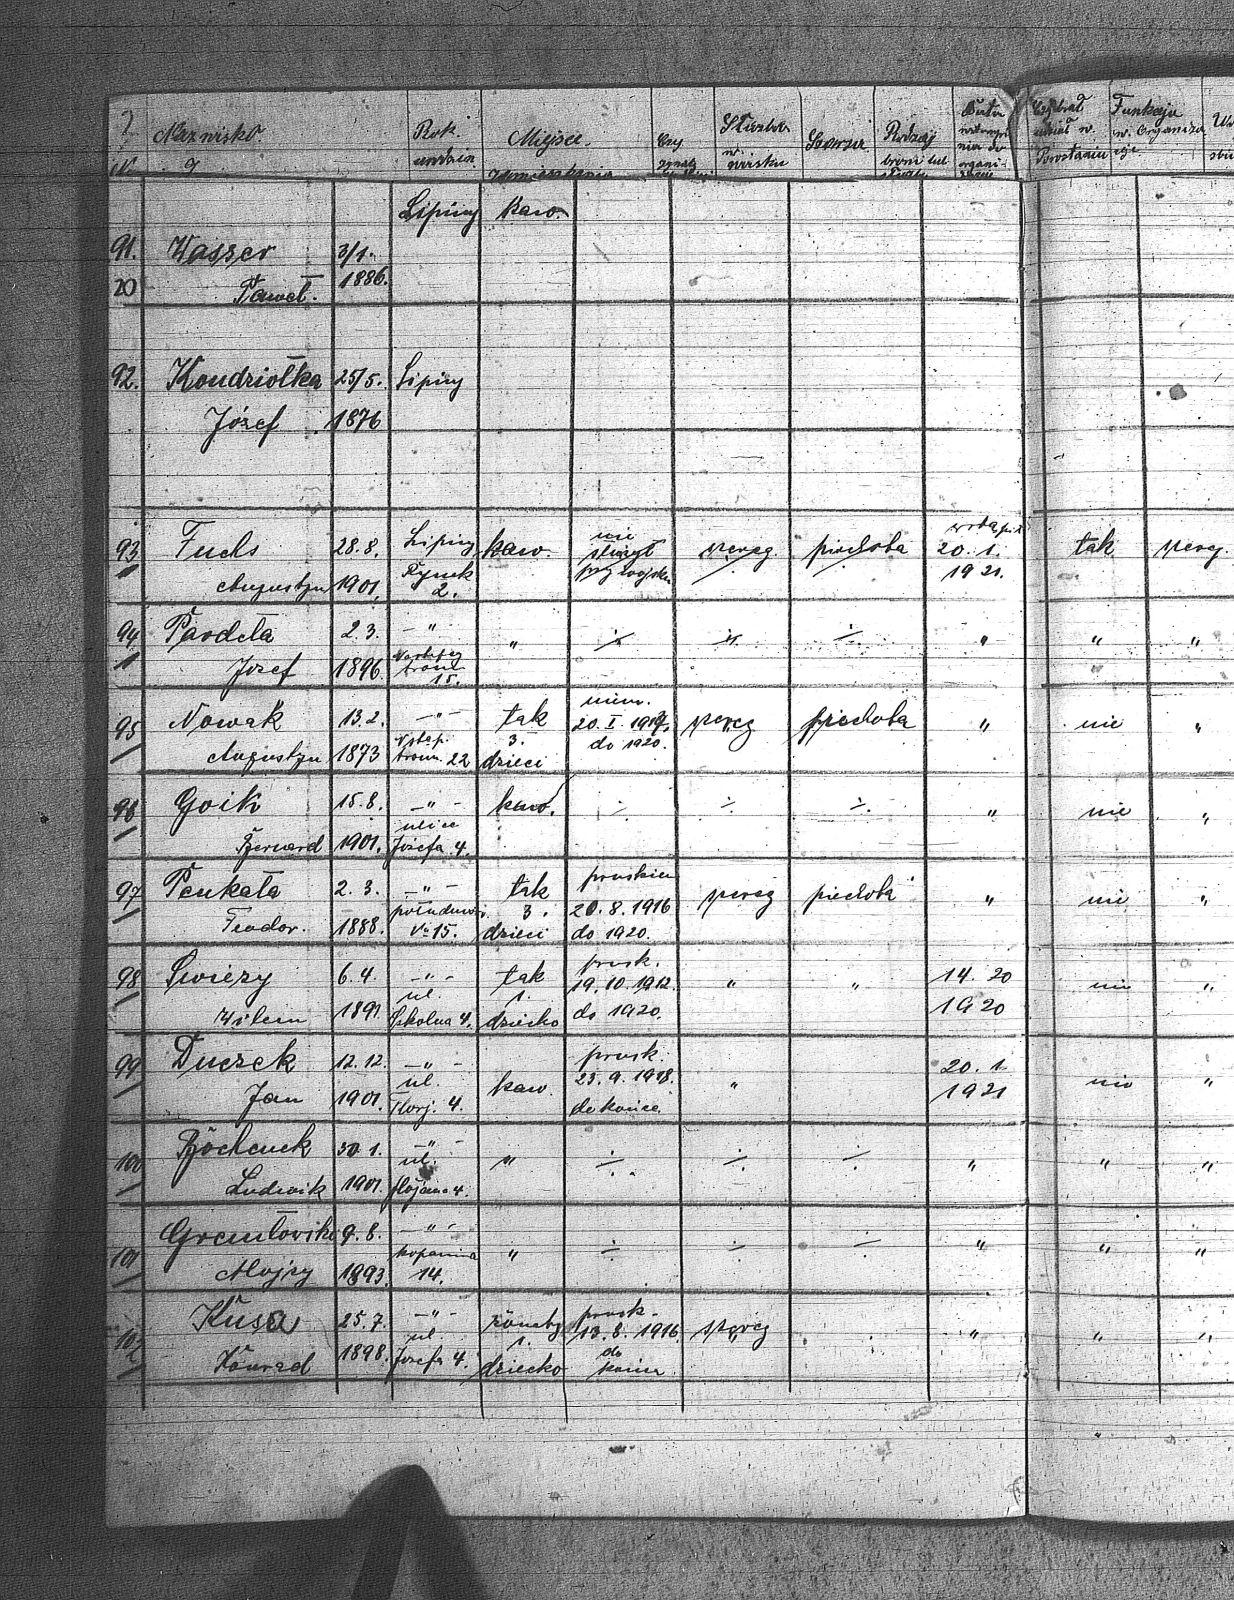 Nazwisko Rok Miejsce Służba Stopień Rodzaj Data Funkcja
urodzin. zamieszkania Czy w wojsku broni lub organi-
Powstaniu
Lipiny kaw.
91. Wasser 3/1.
20 Paweł. 1886.
92. Kondziołka 25/5. Lipiny
Józef 1876
93 Fuchs 28.8. Lipiny kaw. nie służył szereg piechota 20.1. tak szereg.
Augustyn 1901. Rynek 2. przy wojsku 1921.
94 Pardela 2.3. —"— " ÷ ÷ ÷ " " "
Jozef 1896. 15.
95 Nowak 13.2. —"— tak niem. 20.I.1917. szereg piechota " nie "
Augustyn 1873 22 3. dzieci do 1920.
96 Goik 15.8. —"— kaw. ÷ ÷ ÷ " nie "
Bernard 1901. ulica Jozefa 4.
97 Penkała 2. 3. —"— tak pruskim szereg piechota " nie "
Teodor. 1888. 15. 3. dzieci 20.8.1916 do 1920.
98 Swiezy 6.4. —"— tak prusk. 19.10.1912. " " 14. 20 nie "
Wilem 189 ul. Szkolna 4. 1. dziecko do 1920. 1920
99 Duczek 12.12. —"— kaw. prusk. 23.9.1918. " 20.1. nie "
Jan 1901. ul. Florj. 4. do końca. 1921
100 30.1. —"— " ÷ ÷ ÷ " " "
Ludwik 1901. ul. 4.
101 9.8. —"— " ÷ ÷ ÷ " " "
Alojzy 1893. kopanina 14.
102 Kusa 25.7. —"— żonaty prusk. 13.8.1916. szereg " " "
Konrad 1898. ul. Jozefa 4. 1. dziecko do końca